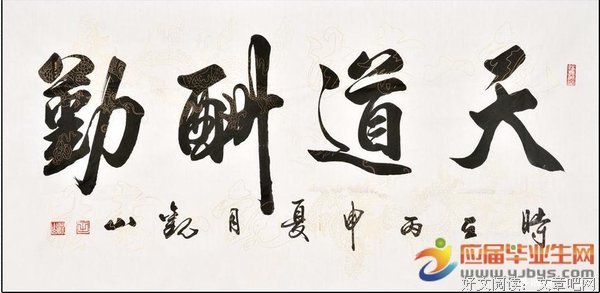 天道酬勤
時在丙申夏月觀山
应届毕业生网
www.yjbys.com
好文阅读：文章吧网